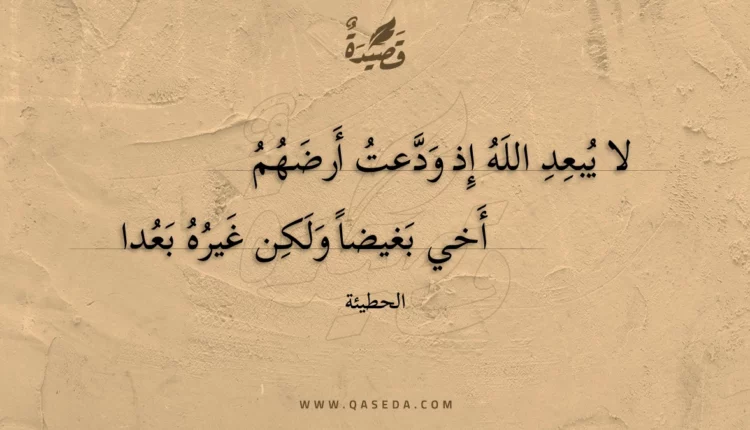 قَصِيْدَةٌ
لا يُبعِدِ اللَهُ إِذ وَدَّعتُ أَرضَهُمُ
أَخي بَغيضاً وَلَكِن غَيرُهُ بَعُدا
الحطيئة
WWW.QASEDA.COM